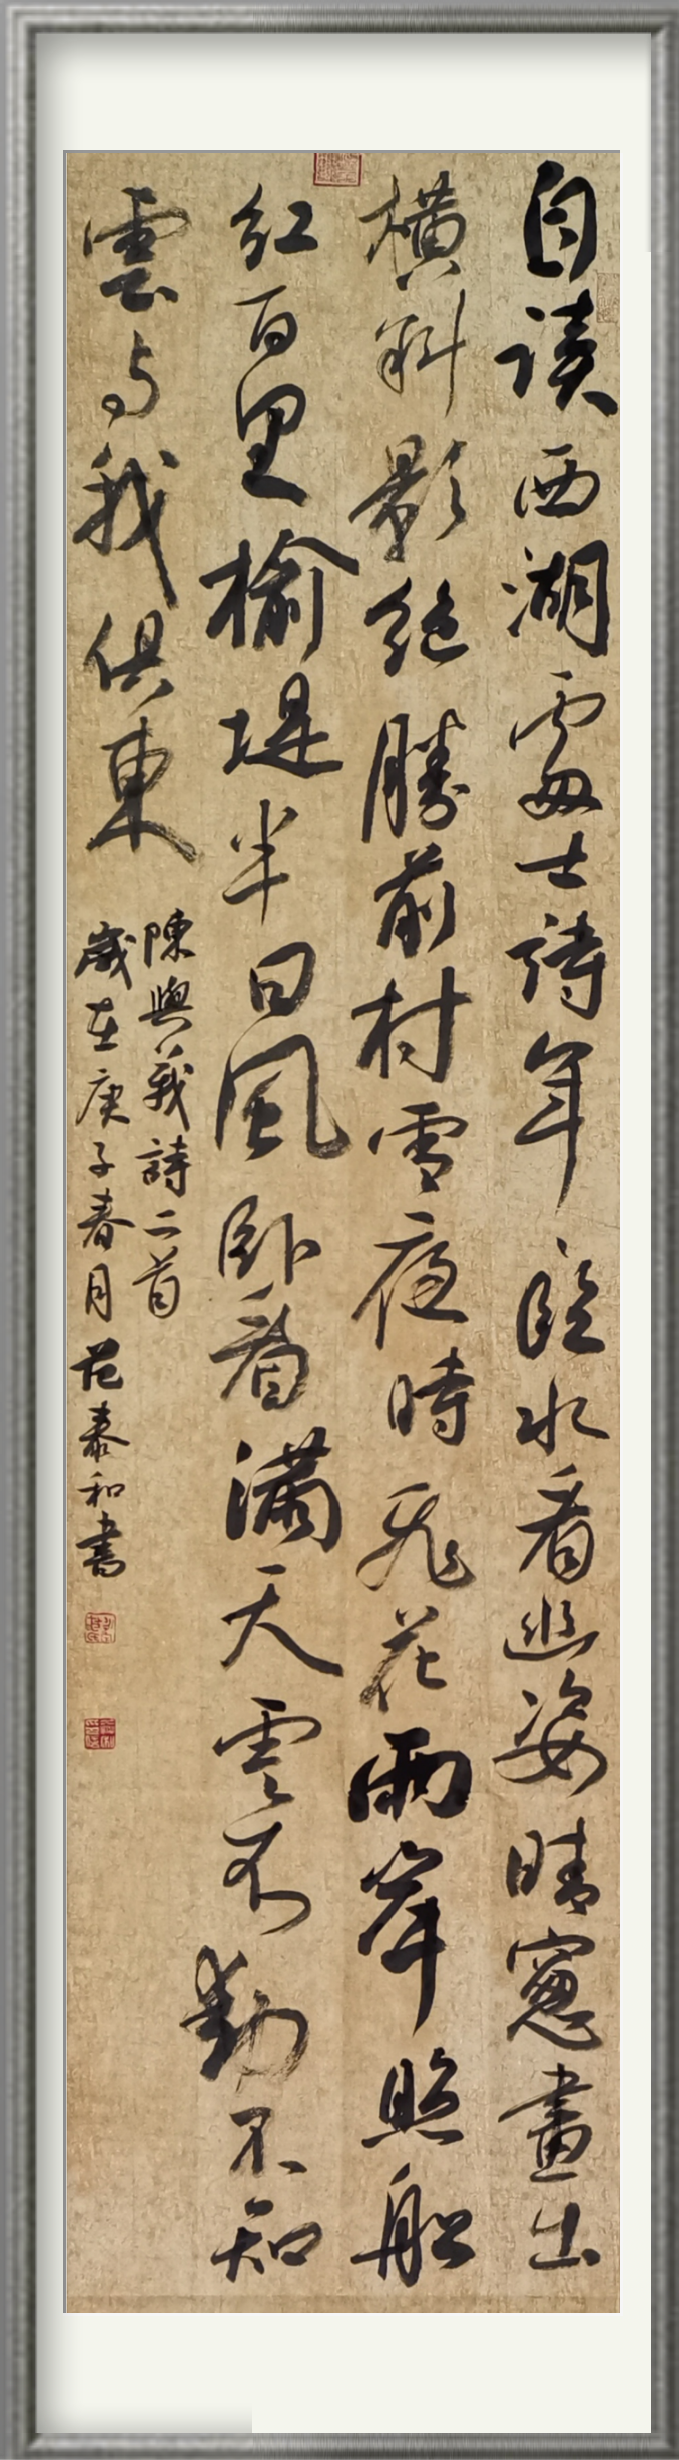 自讀西湖處士詩年々臨水看幽姿晴窻畫出
橫斜影絕勝前村雪夜時飛花兩岸照船
紅百里榆堤半日風卧看滿天雲不動不知
雲与我俱東
陳與義詩二首
歲在庚子春月范泰和書